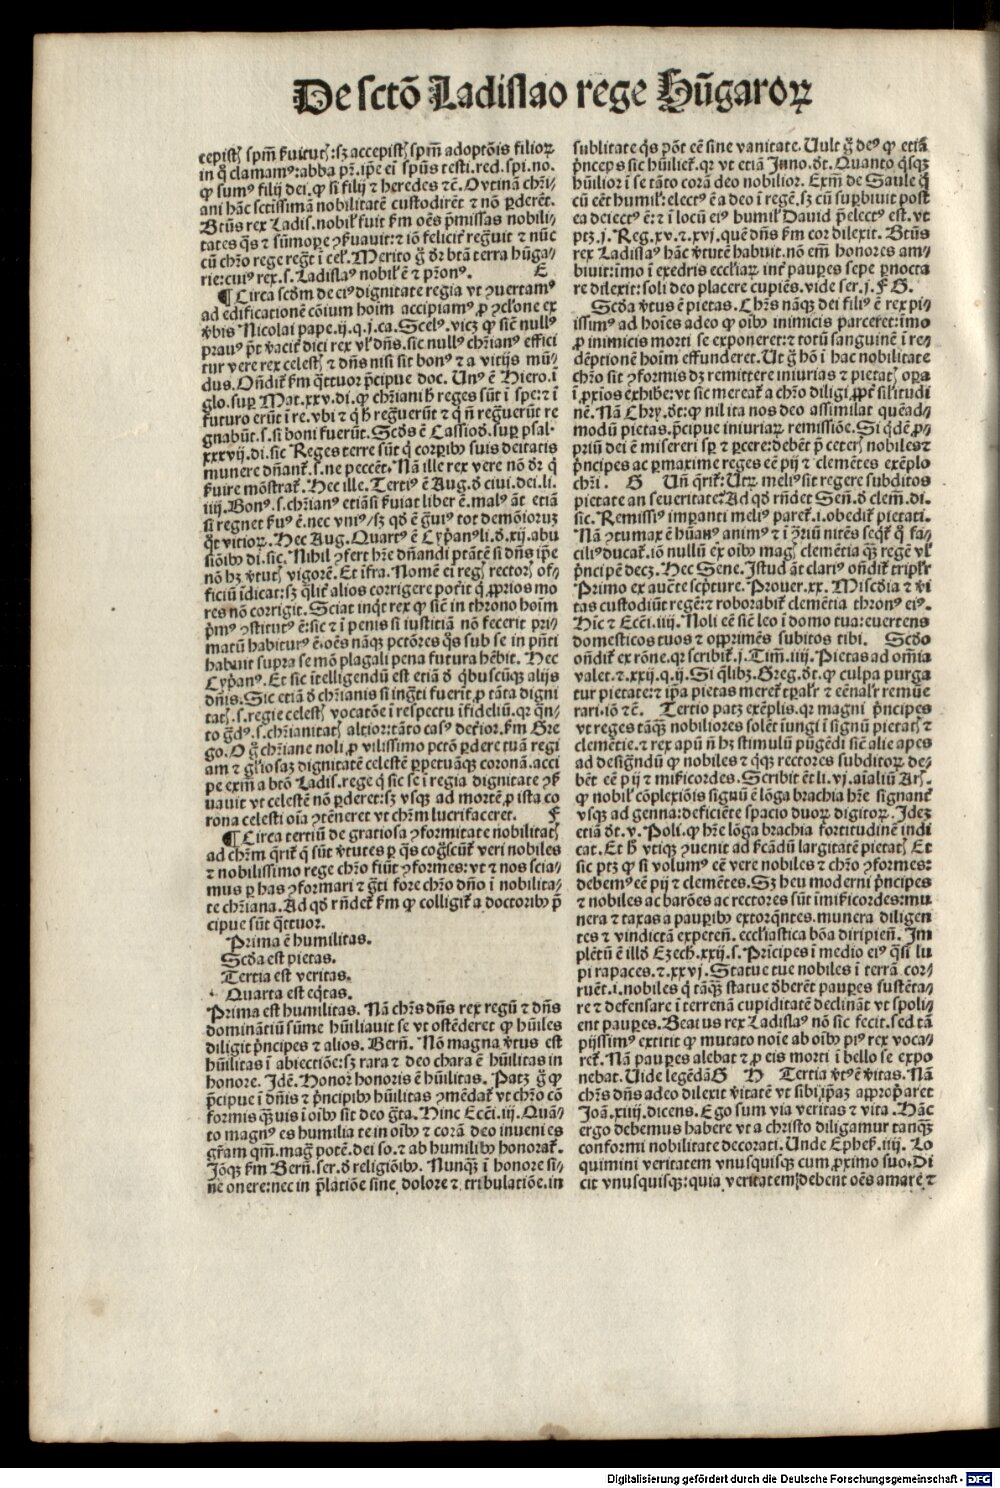 De sctō Ladislao rege Hūgaroꝝ
cepistꝭ spm̄ ẜuitutꝭ: sꝫ accepistꝭ spm̄ adoptōis filioꝝ
in q̄ clamamꝰ: abba pr̄. ip̄e eī spūs testi. red. spi. no.
ꝙ sumꝰ filij dei. ꝙ si filij ⁊ heredes ⁊c̄. Ovtinā chr̄i-
ani hāc sctissimā nobilitatē custodirēt ⁊ nō ꝑderēt.
Btūs rex Ladis. nobil̓ fuit ẜm oēs p̄missas nobili-
tates q̄s ⁊ sūmoꝑe ꝯẜuauit: ⁊ iō felicit̓ regͣuit ⁊ nūc
cū chr̄o rege regͣt ī cel̓. Merito ḡ dr̄ btā terra hūga-
rie: cuiꝰ rex. s. Ladislaꝰ nobil̓ ē ⁊ pr̄onꝰ. E
¶ Circa scd̓m de eiꝰ dignitate regia vt ꝯuertamꝰ
ad edificationē cōium hoim̄ accipiamꝰ ꝓ ꝯcl̓one ex
v̓bis Nicolai pape. ij. q. j. ca. Scelꝰ. vicꝫ ꝙ sic̄ nullꝰ
prauꝰ p̄t v̓acit̓ dici rex vl̓ dn̄s. sic nullꝰ chr̄ianꝰ effici
tur vere rex celestꝭ ⁊ dn̄s nisi sit bonꝰ ⁊ a vitijs mū-
dus. On̄dit̉ ẜm q̄ttuor p̄cipue doc. Unꝰ ē Hiero. ī
glo. suꝑ Mat. xxv. di. ꝙ chr̄iani hͥ reges sūt ī spe: ⁊ ī
futuro erūt ī re. vbi ⁊ q̓ hͥ regͣuerūt ⁊ q̓ n̄ regͣuerūt re
gnabūt. s. si boni fuerūt. Scd̓s ē Cassiod. suꝑ psal.
xxxvij. di. sic Reges terre sūt q̓ corꝑibꝰ suis deitatis
munere dn̄ant̉. s. ne peccēt. Nā ille rex vere nō dr̄ q̓
ẜuire mōstrat̉. Hec ille. Tertiꝰ ē Aug. d̓ ciui. dei. li.
iiij. Bonꝰ. s. chr̄ianꝰ etiāsi ẜuiat liber ē. malꝰ āt etiā
si regnet ẜuꝰ ē. nec vniꝰ/ sꝫ qd̓ ē gͣuiꝰ tot demōioruꝫ
q̄t vitioꝝ. Hec Aug. Quartꝰ ē Cyp̓anꝰ li. d̓. xij. abu
siōibꝰ di. sic. Nihil ꝯfert hr̄e dn̄andi ptātē si dn̄s ip̄e
nō hꝫ v̓tutꝭ vigorē. Et īfra. Nomē eī regꝭ rectorꝭ of-
ficiū īdicat: sꝫ q̄lit̓ alios corrigere pot̓it q̓ ꝓprios mo
res nō corrigit. Sciat inqͣt rex ꝙ sic̄ in throno hoīm
p̓mꝰ ꝯstitutꝰ ē: sic ⁊ ī penis si iustitiā nō fecerit pri-
matū habiturꝰ ē. oēs nāqꝫ pctōres q̓s sub se in pn̄ti
habuit supra se mō plagali pena futura hēbit. Hec
Cyp̓anꝰ. Et sic ītelligendū est etiā d̓ q̓buscūqꝫ alijs
dn̄is. Sic etiā d̓ chr̄ianis si ingͣti fuerīt ꝓ tāta digni
tatꝭ. s. regie celestꝭ vocatōe ī respectu īfideliū. qr qͣn-
to gͣdꝰ. s. chr̄ianitatꝭ altior: tāto casꝰ det̓ior. ẜm Gre
go. O ḡ chr̄iane noli ꝓ vilissimo pctō ꝑdere tuā regi
am ⁊ gl̓iosaꝫ dignitatē celestē ꝑpetuāqꝫ coronā. acci
pe exm̄ a btō Ladis. rege q̓ sic se ī regia dignitate ꝯẜ
uauit vt celestē nō ꝑderet: sꝫ vsqꝫ ad mortē ꝓ ista co
rona celesti oīa ꝯtēneret vt chr̄m lucrifaceret. F
¶ Circa tertiū de gratiosa ꝯformitate nobilitatꝭ
ad chr̄m q̄rit̉ q̄ sūt v̓tutes ꝑ q̄s cogͦscūt̉ veri nobiles
⁊ nobilissimo rege chr̄o fiūt ꝯformes: vt ⁊ nos scia-
mus ꝑ has ꝯformari ⁊ gͣti fore chr̄o dn̄o ī nobilita-
te chr̄iana. Ad qd̓ rn̄det̉ ẜm ꝙ colligit̉ a doctoribꝰ p̄
cipue sūt q̄ttuor.
Prima ē humilitas.
Scd̓a est pietas.
Tertia est veritas.
Quarta est eq̓tas.
Prima est humilitas. Nā chr̄s dn̄s rex regū ⁊ dn̄s
dominātiū sūme hūiliauit se vt ostēderet ꝙ hūiles
diligit p̓ncipes ⁊ alios. Bern̄. Nō magna v̓tus est
hūilitas ī abiectiōe: sꝫ rara ⁊ deo chara ē hūilitas in
honore. Idē. Honor honoris ē hūilitas. Patꝫ ḡ ꝙ
p̄cipue ī dn̄is ⁊ p̓ncipibꝰ hūilitas ꝯmēdat̉ vt chr̄o cō
formis qͣꝫuis ī oībꝰ sit deo gͣta. Hinc Ecc̄i. iij. Quā-
to magnꝰ es humilia te in oībꝰ ⁊ corā deo inueni es
gr̄am qm̄. magͣ potē. dei so. ⁊ ab humilibꝰ honorat̉.
Iōqꝫ ẜm Bern̄. ser. d̓ religiōibꝰ. Nunqͣꝫ ī honore si-
ne onere: nec in p̄latiōe sine dolore ⁊ tribulatiōe. in
sublitate q̄s pōt eē sine vanitate. Uult ḡ deꝰ ꝙ etiā
p̓nceps sic hūiliet̉. qr vt etiā Inno. dt̄. Quanto q̓sqꝫ
hūilior ī se tāto corā deo nobilior. Exm̄ de Saule q̓
cū eēt humil̓: electꝰ ē a deo ī regē. sꝫ cū suꝑbiuit post
ea deiectꝰ ē: ⁊ ī locū eiꝰ humil̓ Dauid p̄electꝰ est. vt
ptꝫ. j. Reg. xv. ⁊. xvj. quē dn̄s ẜm cor dilexit. Btūs
rex Ladislaꝰ hāc v̓tutē habuit. nō em̄ honores am-
biuit: īmo ī exedris eccl̓iaꝝ int̓ pauꝑes sepe ꝑnocta
re dilexit: soli deo placere cupiēs. vide ser. j. F G.
Scd̓a v̓tus ē pietas. Chr̄s nāqꝫ dei filiꝰ ē rex pi-
issimꝰ ad hoīes adeo ꝙ oībꝰ inimicis parceret: īmo
ꝓ inimicis morti se exponeret: ⁊ totū sanguinē ī re-
dēptionē hoīm effunderet. Ut ḡ hō ī hac nobilitate
chr̄o sit ꝯformis dꝫ remittere iniurias ⁊ pietatꝭ oꝑa
ī ꝓxios exhibe: vt sic mereat̉ a chr̄o diligi ꝓpt̓ sil̓itudi
nē. Nā Chrẏ. dt̄: ꝙ nil ita nos deo assimilat quēad-
modū pietas. p̄cipue iniuriaꝝ remissiōe. Si q̓dē ꝓ-
priū dei ē misereri sꝑ ⁊ ꝑcere: debēt p̄ ceterꝭ nobiles ⁊
p̓ncipes ac ꝑmaxime reges eē pij ⁊ clemētes exēplo
chr̄i. G Un̄ q̄rit̉: Utꝝ meliꝰ sit regere subditos
pietate an seueritate: Ad qd̓ rn̄det Sen̄. d̓ clem̄. di.
sic. Remissiꝰ imꝑanti meliꝰ paret̉. i. obedit̉ pietati.
Nā ꝯtumax ē hūanꝰ animꝰ ⁊ ī ꝯ̓riū nitēs seqͥt̉ q̓ fa-
ciliꝰ ducat̉. iō nullū ex oībꝰ magꝭ clemētia qͣꝫ regē vl̓
p̓ncipē decꝫ. Hec Sene. Istud āt clariꝰ on̄dit̉ tripl̓r
Primo ex auēte scp̓ture. Prouer. xx. Misc̓dia ⁊ v̓i
tas custodiūt regē: ⁊ roborabit̉ clemētia thronꝰ eiꝰ.
Hīc ⁊ Ecc̄i. iiij. Noli eē sic̄ leo ī domo tua: euertens
domesticos tuos ⁊ opp̓mēs subitos tibi. Scd̓o
on̄dit̉ ex rōne. qr scribit̉. j. Tim̄. iiij. Pietas ad om̄ia
valet. ⁊. xxij. q. ij. Si q̄libꝫ. Greg. dt̄. ꝙ culpa purga
tur pietate: ⁊ ip̄a pietas meret̉ tꝑal̓r ⁊ et̓nal̓r remūe
rari. iō ⁊c̄. Tertio patꝫ exēplis. qr magni p̓ncipes
vt reges tāqͣꝫ nobiliores solēt iungi ī signū pietatꝭ ⁊
clemētie. ⁊ rex apū n̄ hꝫ stimulū pūgēdi sic̄ alie apes
ad designādū ꝙ nobiles ⁊ q̓qꝫ rectores subditoꝝ de-
bēt eē pij ⁊ mīẜicordes. Scribit ēt li. vj. aīaliū Ar̄.
ꝙ nobil̓ cōplexiōis signū ē lōga brachia hr̄e signant̉
vsqꝫ ad genna: deficiēte spacio duoꝝ digitoꝝ. Ideꝫ
etiā dt̄. v. Poli. ꝙ hr̄e lōga brachia fortitudinē indi
cat. Et hͦ vtiqꝫ ꝯuenit ad ẜcādū largitatē pietatꝭ Et
sic ptꝫ ꝙ si volumꝰ eē vere nobiles ⁊ chr̄o ꝯformes:
debemꝰ eē pij ⁊ clemētes. Sꝫ heu moderni p̓ncipes
⁊ nobiles ac barōes ac rectores sūt īmīẜicordes: mu
nera ⁊ taxas a pauꝑibꝰ extorq̄ntes. munera diligen
tes ⁊ vindictā expeten̄. eccl̓iastica bōa diripien̄. Im
pletū ē illd̓ Ezech. xxij. s. Pri̇ncipes ī medio eiꝰ q̄si lu
pi rapaces. ⁊. xxvj. Statue tue nobiles ī terrā cor-
ruēt. i. nobiles q̓ tāqͣꝫ statue d̓berēt pauꝑes sustēta-
re ⁊ defensare ī terrenā cupiditatē declināt vt spoli-
ent pauꝑes. Beatus rex Ladislaꝰ nō sic fecit. sed tā
pijssimꝰ extitit ꝙ mutato noīe ab oībꝰ piꝰ rex voca-
ret̉. Nā pauꝑes alebat ⁊ ꝓ eis morti ī bello se expo
nebat. Uide legēdā G H Tertia v̓tꝰ ē v̓itas. Nā
chr̄s dn̄s adeo dilexit v̓itatē vt sibijpͣaꝫ app̓op̓aret
Joā. xiiij. dicens. Ego sum via veritas ⁊ vita. Hāc
ergo debemus habere vt a christo diligamur tanqͣꝫ
conformi nobilitate decorati. Unde Ephes̉. iiij. Lo
quimini veritatem vnusquisqꝫ cum ꝓximo suo. Di
cit vnusquisqꝫ: quia veritatem debent oēs amare ⁊
Digitalisierung gefördert durch die Deutsche Forschungsgemeinschaft - DFG